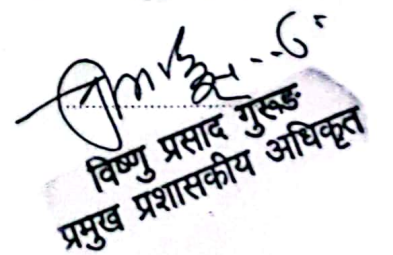 विष्णु प्रसाद गुरूङ
प्रमुख प्रशासकीय अधिकृत